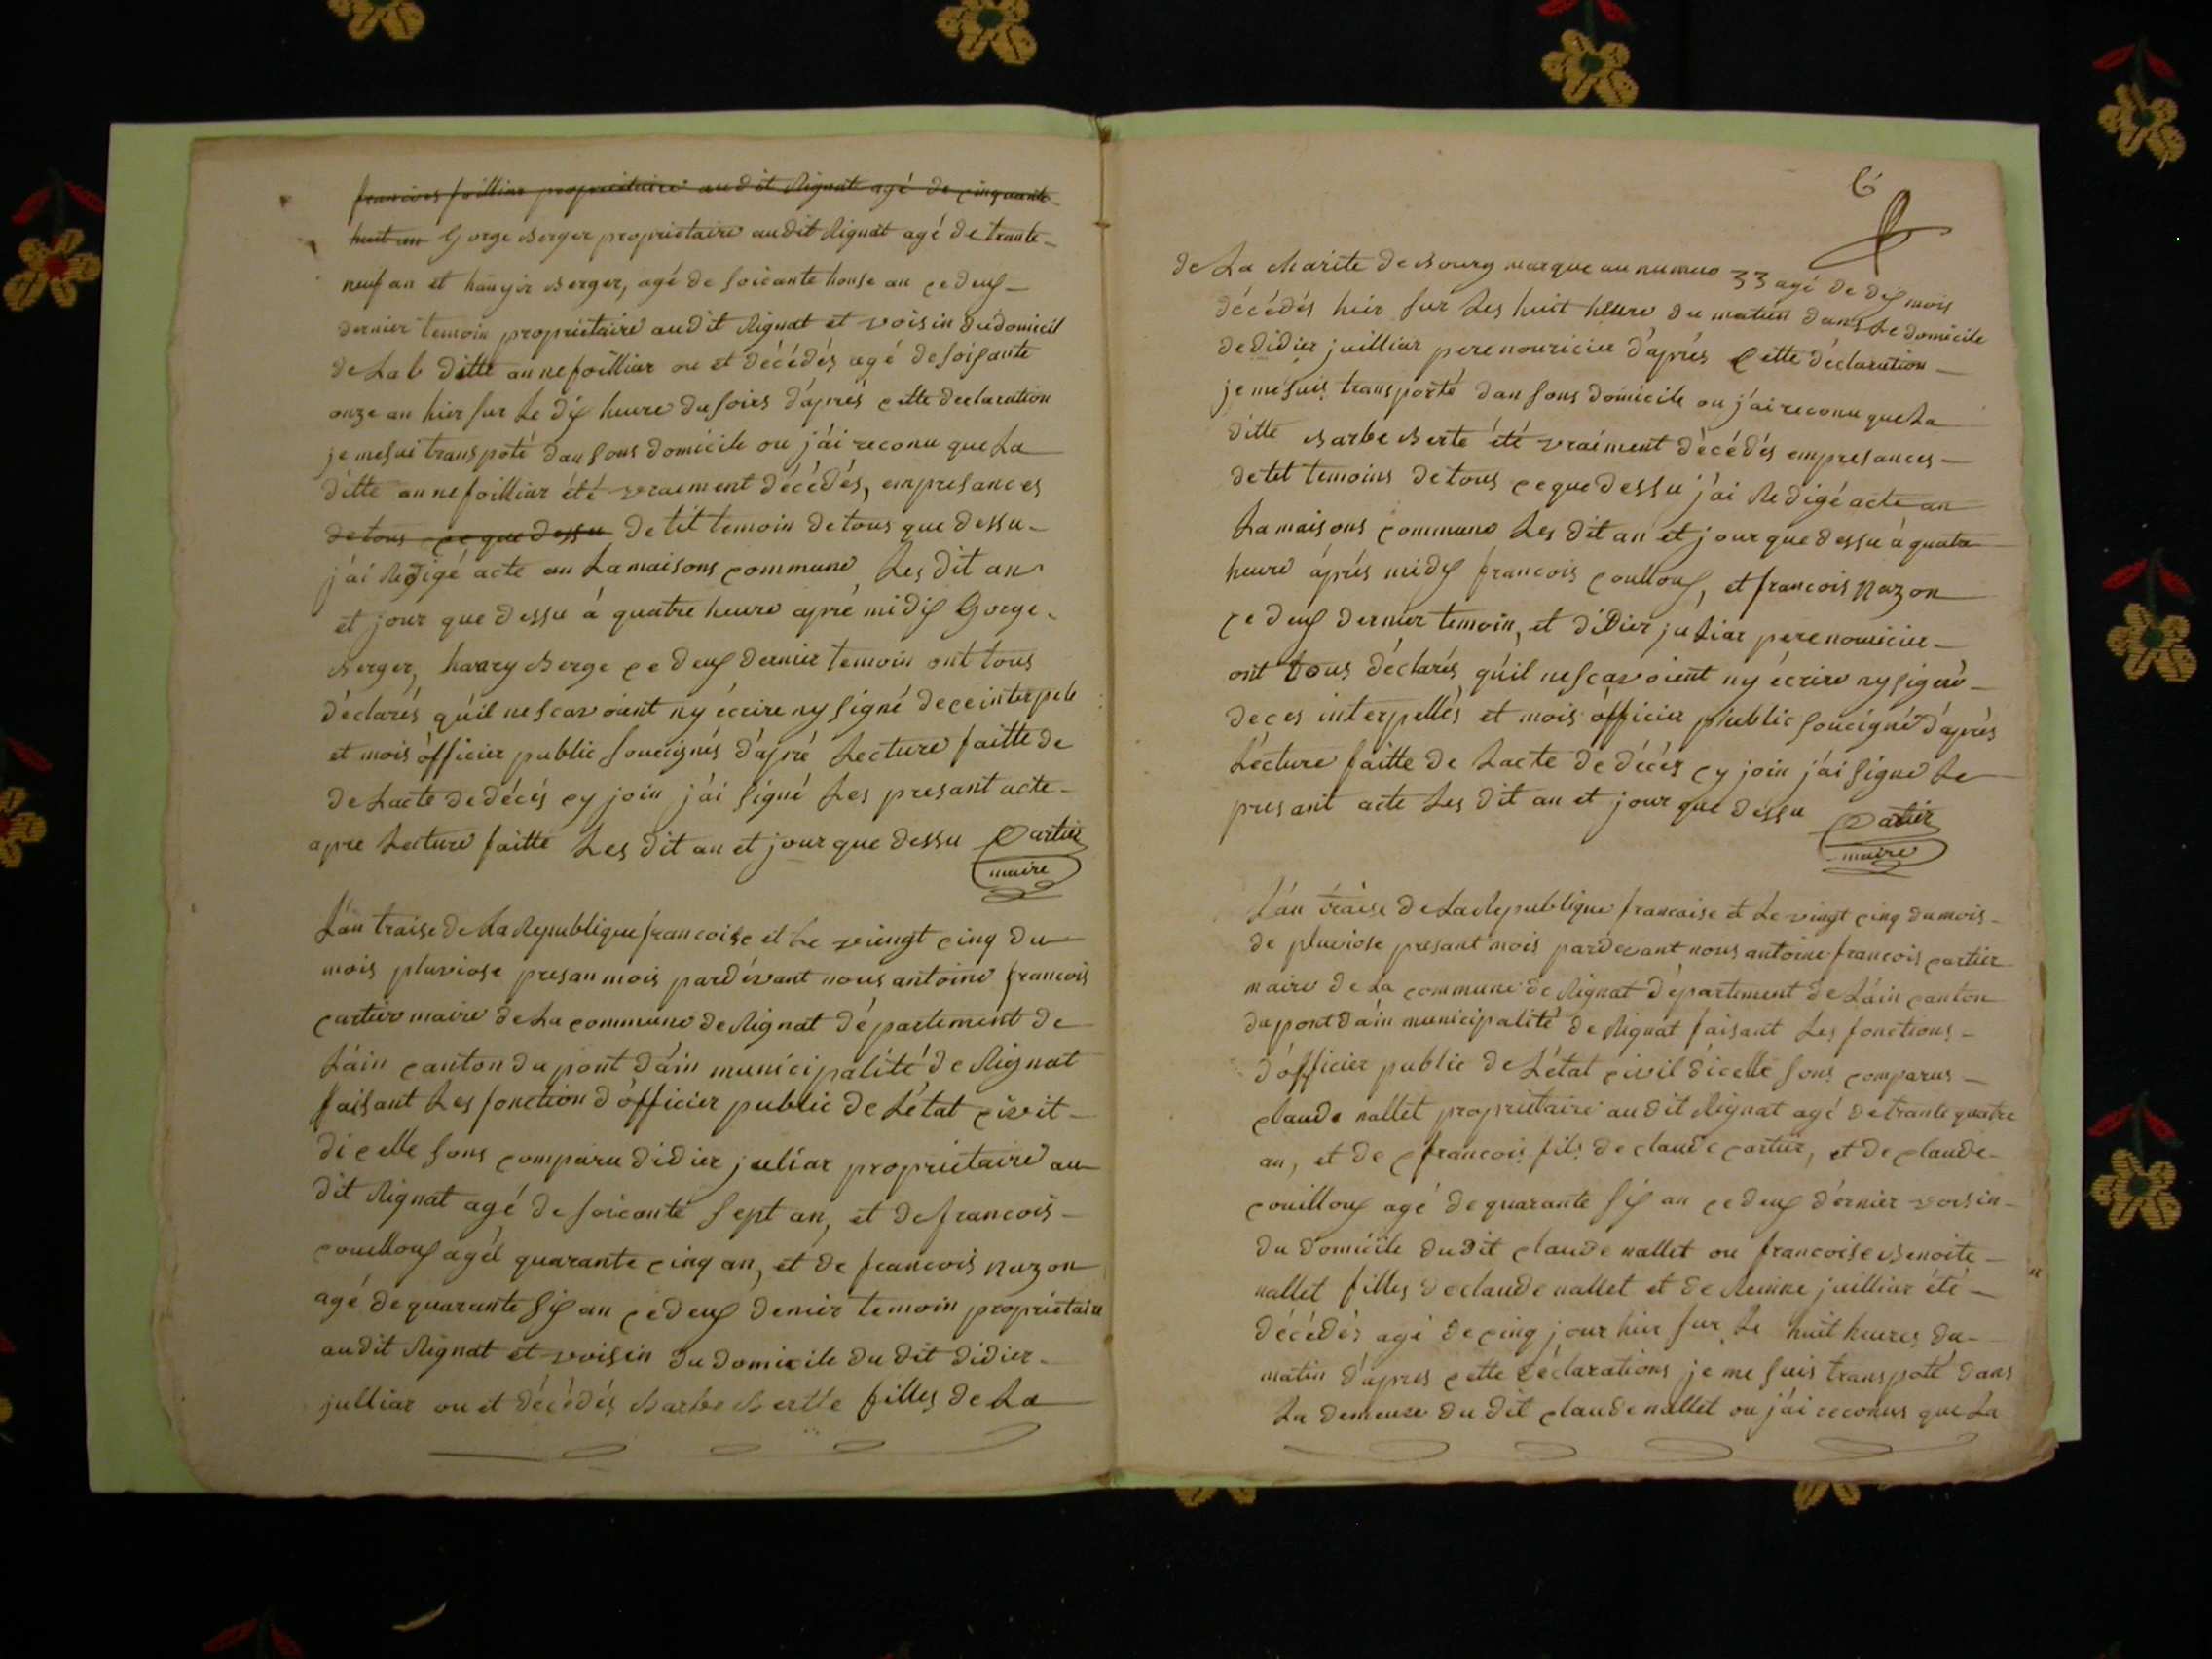 francois foilliar propriétaire audit Rignat agé de cinquante
huit an Gorge Berger propriétaire audit Rignat agé de trante
neuf an et hanyir Berger, agé de soicante honse an ce deux
dernier temoin propriétaire audit Rignat et voisin du domicil
de La ditte anne foilliar ou et décédés agé de soisante
onze an hier sur Le dix heure du soirs d'aprés cette declaration
je me sui transpoté dan sons domicile ou j'ai reconu que La
ditte anne foilliar été vraiment décédés, empresances
de tous ce que dessu de tit temoin de tous que dessu
j'ai Redigé acte au La maisons commune Les dit an
et jour que dessu á quatre heure apré midis Gorge
Berger, haary Berge ce deux dernier temoin ont tous
déclarés qu'il ne scavoient ny écrire ny signé de ce interpele
et mois officier public soucignés d'apré Lecture faitte de
de Lacte de décés cy join j'ai signé Les presant acte
apre Lecture faitte Les dit an et jour que dessu Cartier
maire
L'an traise de La Republique francoise et Le vingt cinq du
mois pluviose presan mois pardévant nous antoine francois
cartier maire de La commune de Rignat département de
L'ain canton du pont d'ain municipalité de Rignat
faisant Les fonction d'officier public de L'état civit
dicelle sons comparu didier juliar propriétaire au
dit Rignat agé de soicante sept an, et de francois
couilloux agél quarante cinq an, et de francois nazon
agé de quarante six an ce deux denier temoin propriétaire
audit Rignat et voisin du domicile du dit didier
julliar ou et décédés Barbe Bertte filles de La
6
de La charite de Bourg marque au numero 33 agé de dix mois
décédés hier sur Les huit heure du matin dans Le domicile
de didier juilliar pere nouricier d'aprés Cette déclaration
je me suis transporté dan sons domicile ou j'ai reconu que La
ditte Barbe Berte été vraiment décédés empresances
de tet temoins de tous ce que dessu j'ai Redigé acte an
La maisons commune Les dit an et jour que dessu á quatre
heure áprés midy francois couilloux, et francois nazon
ce deux dernier temoin, et didier juliar pere nouricier
ont tous déclarés qu'il ne scavoient ny écrire ny signé
de ces interpellés et mois officier public soucigné d'aprés
Lecture faitte de Lacte de décés cy join j'ai signé Le
presant acte Les dit an et jour que dessu Cartier
maire
L'an traise de La Republique francaise et Le vingt cinq du mois
de pluviose presant mois pardevant nous antoine francois cartier
maire de La commune de Rignat département de L'ain canton
du pont d'ain municipalité de Rignat faisant Les fonctions
d'officier public de L'état civil dicelle sons comparus
claude nallet propriétaire audit Rignat agé de trante quatre
an, et de francois fils de claude cartier, et de claude
couilloux agé de quarante six an ce deux dérnier voisin
du domicile du dit claude nallet ou francoise Benoite
nallet filles de claude nallet et de juilliar été
décédés agé de cinq jour hier sur Le huit heures du
matin d'apres cette déclarations je me suis transpoté dans
La demeure du dit claude nallet ou j'ai reconus que La